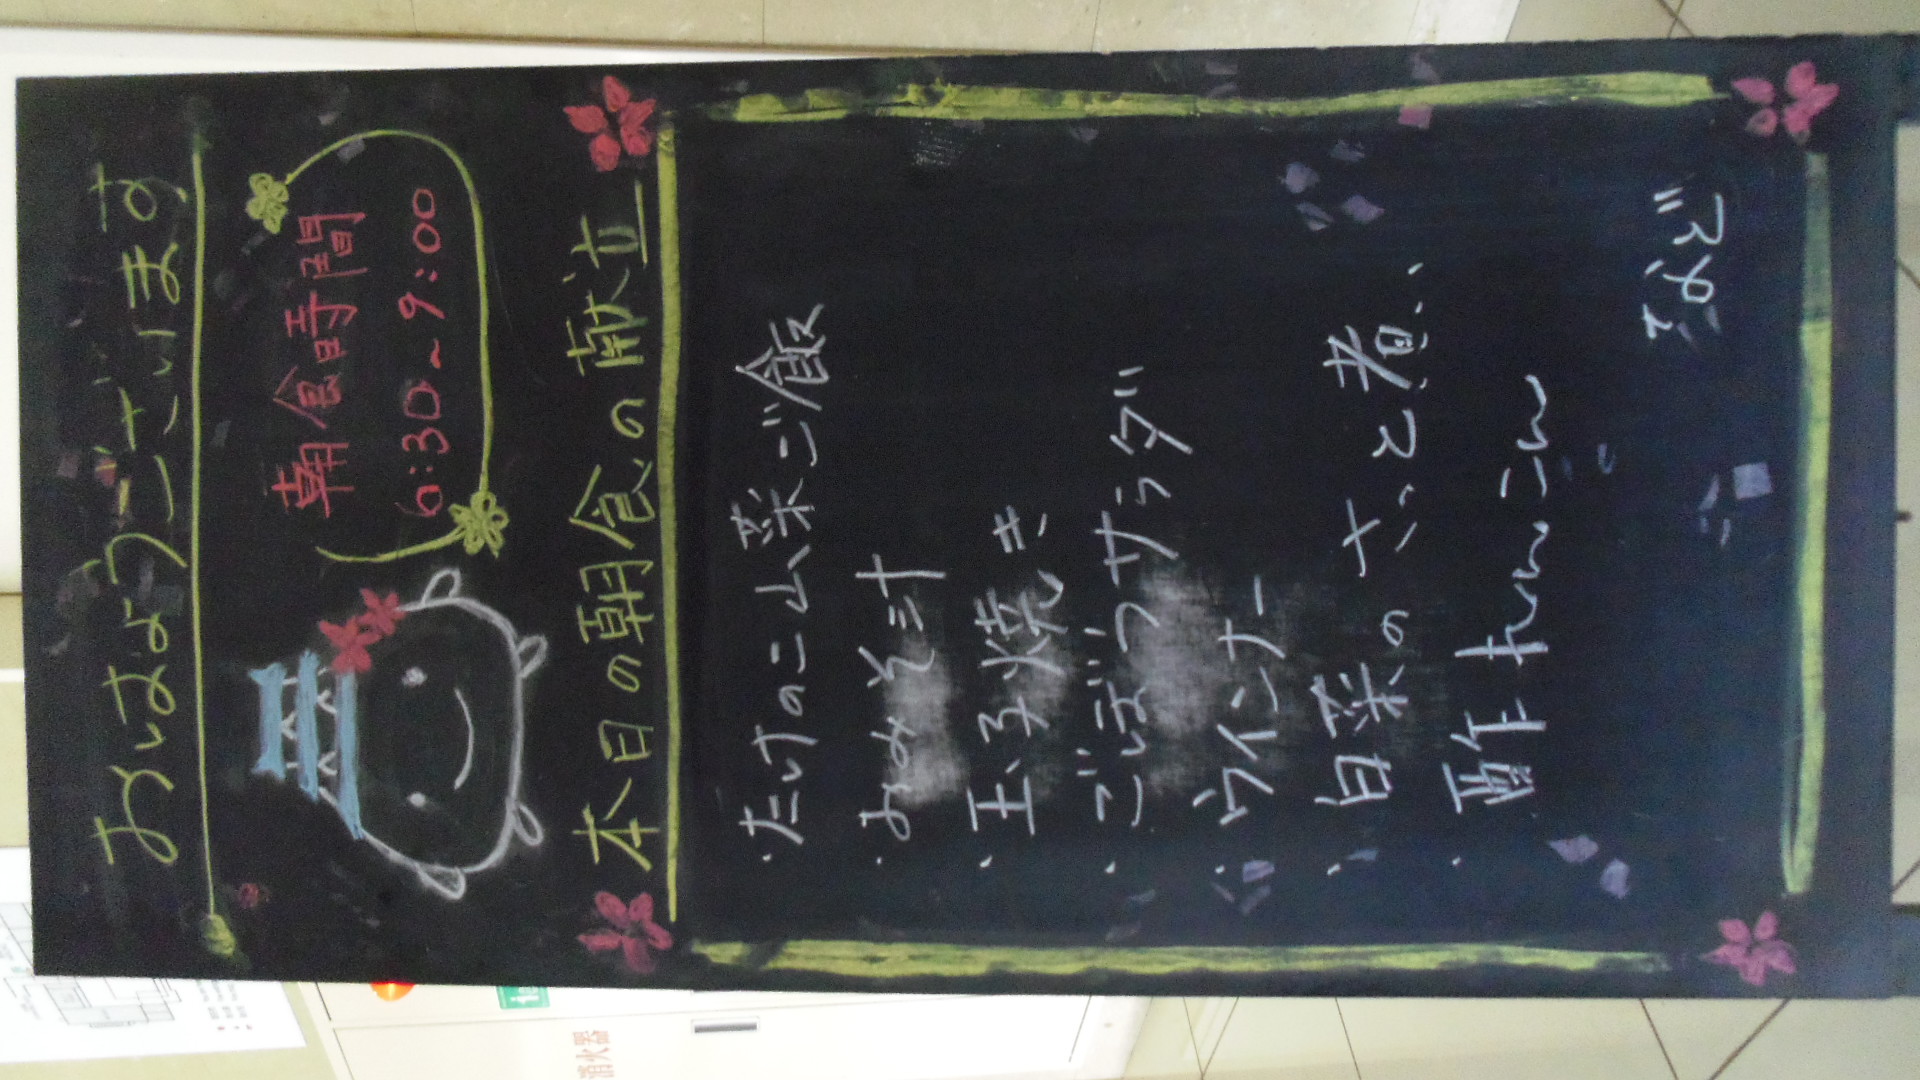 おはようございます
朝食時間
6:30~9:00
本日の朝食の献立
・たけのこ山菜ご飯
・おみそ汁
・玉子焼き
・ごぼうサラダ
・ウインナー
・白菜のさっと煮
・酢れんこん
など
消火器